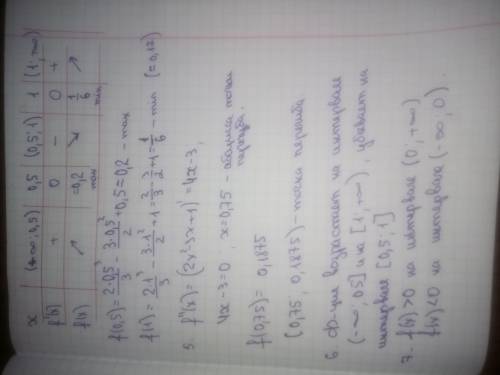 x | (-∞; 0,5) | 0,5 | (0,5; 1) | 1 | (1; ∞)
f'(x) | + | 0 | - | 0 | +
f(x) | ↗ | ≈0,2 max | ↘ | 1/6 min | ↗
f(0,5) = 2·0,5³/3 - 3·0,5²/2 + 0,5 = 0,2 - max
f(1) = 2·1³/3 - 3·1²/2 + 1 = 2/3 - 3/2 + 1 = 1/6 - min (≈0,17)
5. f''(x) = (2x²-3x+1)' = 4x-3,
4x-3=0, x=0,75 - абсцисса точки
перегиба.
f(0,75) = 0,1875
(0,75; 0,1875) - точка перегиба
6. Ф-ция возрастает на интервале
(-∞; 0,5] и на [1; +∞), убывает на
интервале [0,5; 1]
7. f(x)>0 на интервале (0; +∞)
f(x)<0 на интервале (-∞; 0).